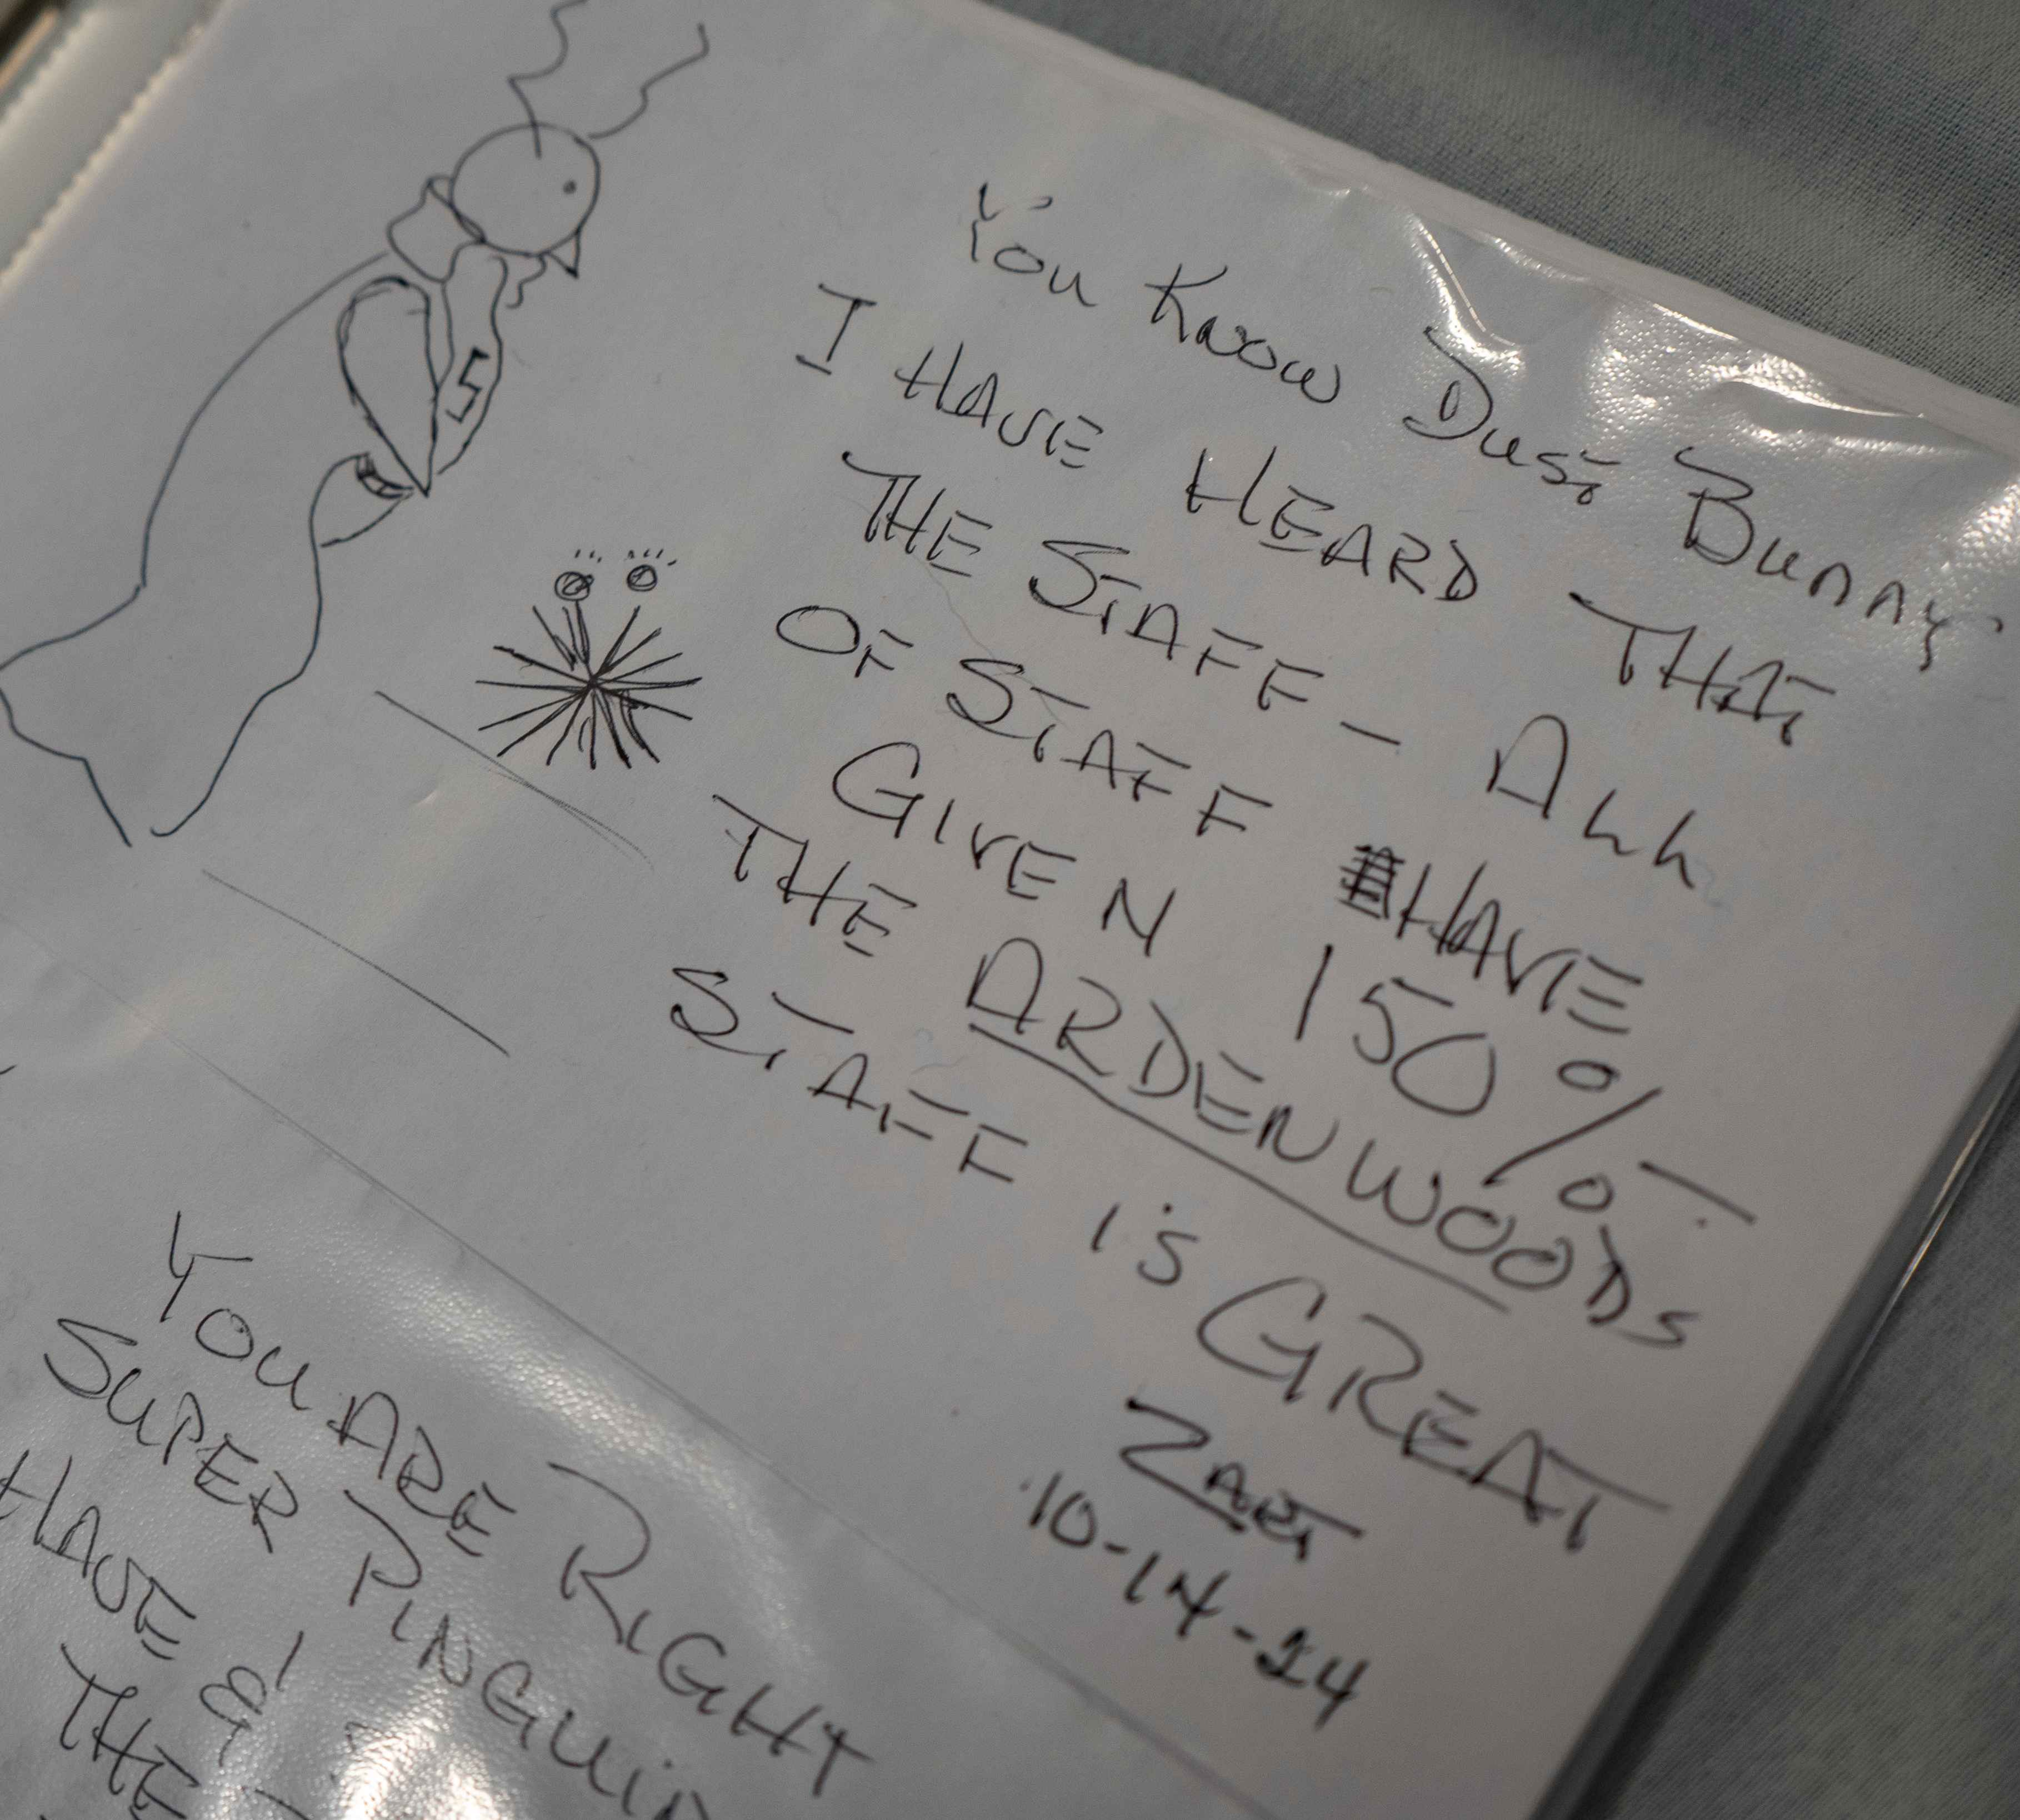 S
You Know Dust Bunny
I HAVE HEARD THAT
THE STAFF - ALL
OF STAFF HAVE
GIVEN 150%.
THE ARDENWOODS
STAFF is GREAT
10-14-24
You ARE RIGHT
SUPER PINGUIN
HAVE &
THE